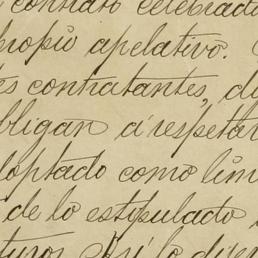 contrato celebrado
propio apelativo.
contratantes, 
obligan á respetar
adoptado como lím
de lo estipulado
Así lo dicen